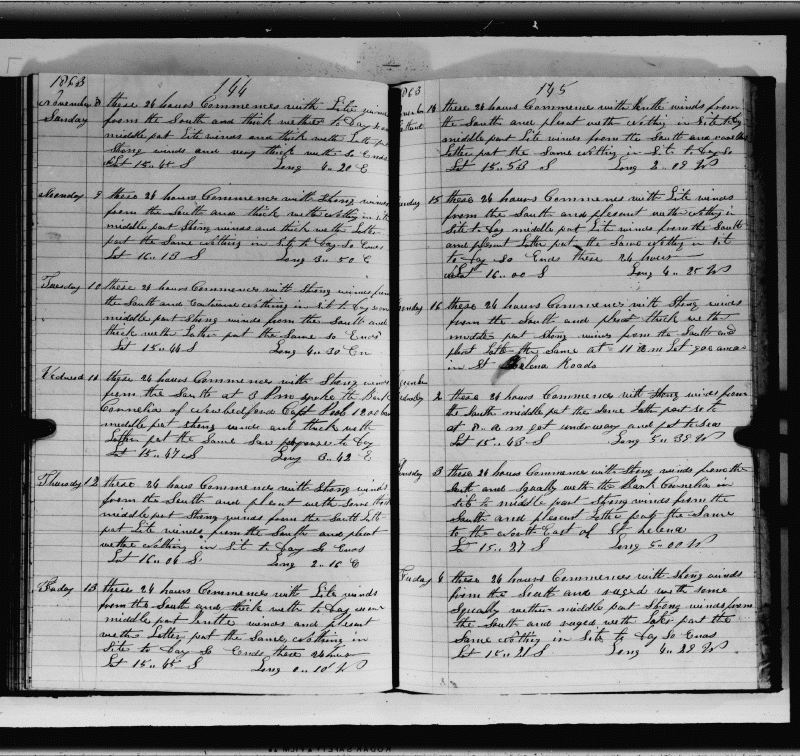 1863
144
November 8 these 24 hours Commences with Lite winds
Sunday from the South and thick wether to Day
middle part Lite winds and thick weth Latter part
Strong winds and very thick weth So Ends
Lat 15 " 45 S Long 4 " 20 E
Monday 9 these 24 hours Commences with Strong winds
from the South and thick weth Nothing in Site
middle part Strong winds and thick weth Latter
part the Same Nothing in Site to Day So Ends
Lat 16 " 13 S Long 3 " 50 E
Tuesday 10 these 24 hours Commences with Strong winds from
the South and Nothing in Sit to Day
middle part Strong winds from the South and
thick weth Latter part the Same So Ends
Lat 15 " 44 S Long 4 " 30 En
Wednesd 11 these 24 hours Commences with Strong winds
from the South at 3 P m spoke the Bark
Cornelia of Newbedford Capt 1200
middle part Strong winds and thick weth
Latter pat the Same Saw to Day
Lat 15 " 47 S Long 3 " 42 E
Thursday 12 these 24 hours Commences with Strong winds
from the South and plesent weth
middle part Strong winds from the South Latt
part Lite winds from the South and plesent
wethe Nothing in Sit to Day So Ends
Lat 16 " 04 S Long 2 " 16 E
Friday 13 these 24 hours Commences with Lite winds
from the South and thick weth to Day
middle part winds and plesent
weth Latter part the Same, Nothing in
Site to Day So Ends these 24 hours
Lat 15 " 45 S Long 0 " 10 W
1863
145
14 these 24 hours Commence with winds from
the South and plesent weth Nothing in Site to Day
middle part Lite winds from the South and
Latter part the Same Nothing in Sit to Day So
Lat 15 " 53 S Long 2 " 18 W
15 these 24 hours Commences with Lite winds
from the South and plesent weth Nothing in
Site to Day middle part Lit winds from the South
and plesent Latter part the Same Nothing in Sit
to Day So Ends these 24 hours
Lat 16 " 00 S Long 4 " 25 W
16 these 24 hours Commences with Strong winds
from the South and plesent thick weth
middle part Strong winds from the South and
plesent Latt the Same at 11 A m Let goe
in St Helena Roads
2 these 24 hours Commences with Strong winds from
the South middle part the Same Latter part
at 8 " A m got underway and put to Sea
Lat 15 " 43 S Long 5 " 38 W
3 these 24 hours Commences with Strong winds from the
South and Squally weth the Bark Cornelia in
Sit to middle part Strong winds from the
South and plesent Latter part the Same
to the North East of St Helena
Lat 15 " 27 S Long 5 " 00 W
Friday 4 these 24 hours Commences with Strong winds
from the South and ruged with some
Squally wether middle part Strong winds from
the South and ruged weth Later part the
Same Nothing in Site to Day So Ends
Lat 15 " 21 S Long 4 " 28 W